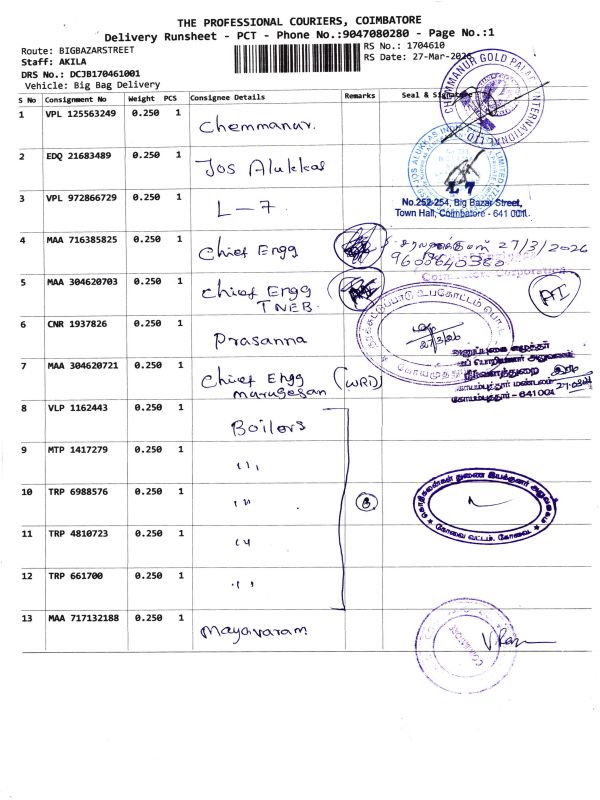 THE PROFESSIONAL COURIERS, COIMBATORE
Delivery Runsheet - PCT - Phone No.:9047080280 - Page No.:1
Route: BIGBAZARSTREET
Staff: AKILA
DRS No.: DCJB170461001
Vehicle: Big Bag Delivery
RS No.: 1704610
RS Date: 27-Mar-2026
S No Consignment No Weight PCS Consignee Details Remarks Seal & Signature
CHEMMANUR GOLD PALACE INTERNATIONAL LTD
1 VPL 125563249 0.250 1 Chemmanur.
2 EDQ 21683489 0.250 1 Jos Alukkas
JOS ALUKKAS
3 VPL 972866729 0.250 1 L-7
L 7
No.252-254, Big Bazar Street,
Town Hall, Coimbatore - 641 001.
4 MAA 716385825 0.250 1 Chief Engg
27/3/2026
9600640380
Corporation
5 MAA 304620703 0.250 1 Chief Engg
TNEB.
AI
6 CNR 1937826 0.250 1 Prasanna
27/3/26
7 MAA 304620721 0.250 1 Chief Engg (WRD)
murugesan
கோயம்புத்தூர் மண்டலம்
கோயம்புத்தூர் - 641 001
8 VLP 1162443 0.250 1 Boilers
9 MTP 1417279 0.250 1 ,,
10 TRP 6988576 0.250 1 ,,
கொதிகலன்கள் துணை இயக்குனர் அலுவலகம்
கோவை வட்டம், கோவை.
11 TRP 4810723 0.250 1 ,,
12 TRP 661700 0.250 1 ,,
13 MAA 717132188 0.250 1 Mayavaram
COIMBATORE